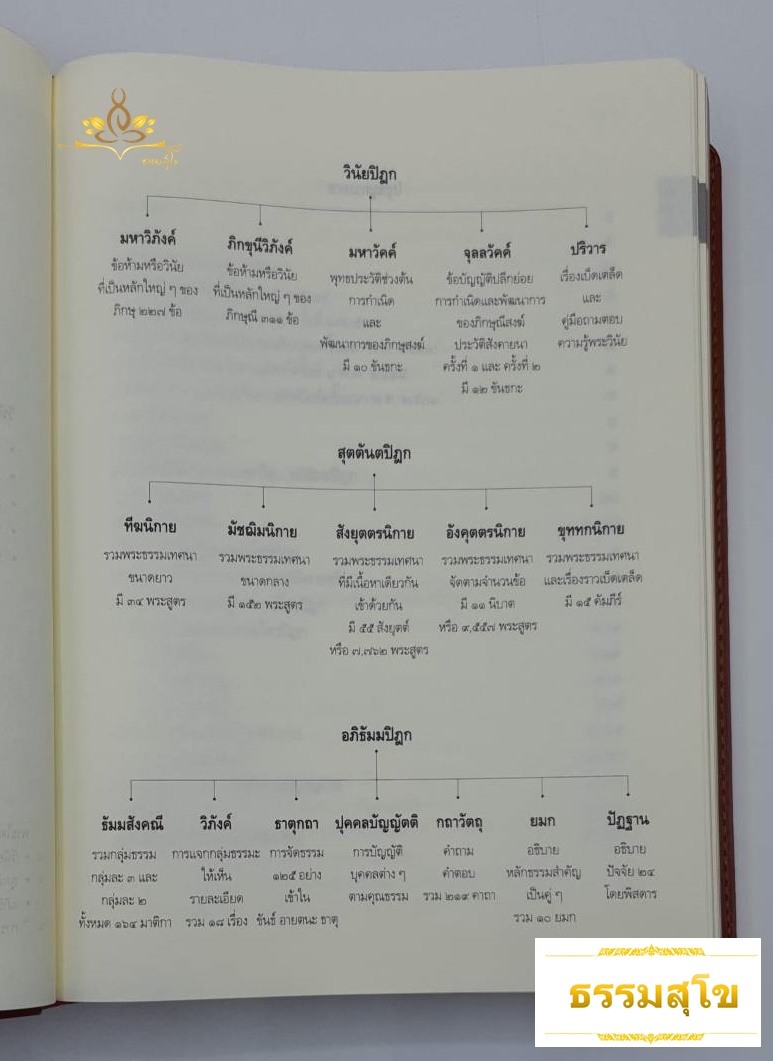 ธรรมสุโข
วินัยปิฎก
มหาวิภังค์
ข้อห้ามหรือวินัย
ที่เป็นหลักใหญ่ ๆ ของ
ภิกษุ ๒๒๗ ข้อ
ภิกขุนีวิภังค์
ข้อห้ามหรือวินัย
ที่เป็นหลักใหญ่ ๆ ของ
ภิกษุณี ๓๑๑ ข้อ
มหาวัคค์
พุทธประวัติช่วงต้น
การกำเนิด
และ
พัฒนาการของภิกษุสงฆ์
มี ๑๐ ขันธกะ
จุลลวัคค์
ข้อบัญญัติปลีกย่อย
การกำเนิดและพัฒนาการ
ของภิกษุณีสงฆ์
ประวัติสังคายนา
ครั้งที่ ๑ และ ครั้งที่ ๒
มี ๑๒ ขันธกะ
ปริวาร
เรื่องเบ็ดเตล็ด
และ
คู่มือถามตอบ
ความรู้พระวินัย
สุตตันตปิฎก
ทีฆนิกาย
รวมพระธรรมเทศนา
ขนาดยาว
มี ๓๔ พระสูตร
มัชฌิมนิกาย
รวมพระธรรมเทศนา
ขนาดกลาง
มี ๑๕๒ พระสูตร
สังยุตตรนิกาย
รวมพระธรรมเทศนา
ที่มีเนื้อหาเดียวกัน
เข้าด้วยกัน
มี ๕๕ สังยุตต์
หรือ ๗,๗๖๒ พระสูตร
อังคุตตรนิกาย
รวมพระธรรมเทศนา
จัดตามจำนวนข้อ
มี ๑๑ นิบาต
หรือ ๙,๕๕๗ พระสูตร
ขุททกนิกาย
รวมพระธรรมเทศนา
และเรื่องราวเบ็ดเตล็ด
มี ๑๕ คัมภีร์
อภิธัมมปิฎก
ธัมมสังคณี
รวมกลุ่มธรรม
กลุ่มละ ๓ และ
กลุ่มละ ๒
ทั้งหมด ๑๖๔ มาติกา
วิภังค์
การแจกกลุ่มธรรมะ
ให้เห็น
รายละเอียด
รวม ๑๘ เรื่อง
ธาตุกถา
การจัดธรรม
๑๒๕ อย่าง
เข้าใน
ขันธ์ อายตนะ ธาตุ
ปุคคลบัญญัตติ
การบัญญัติ
บุคคลต่าง ๆ
ตามคุณธรรม
กถาวัตถุ
คำถาม
คำตอบ
รวม ๒๑๙ คาถา
ยมก
อธิบาย
หลักธรรมสำคัญ
เป็นคู่ ๆ
รวม ๑๐ ยมก
ปัฏฐาน
อธิบาย
ปัจจัย ๒๔
โดยพิสดาร
ธรรมสุโข